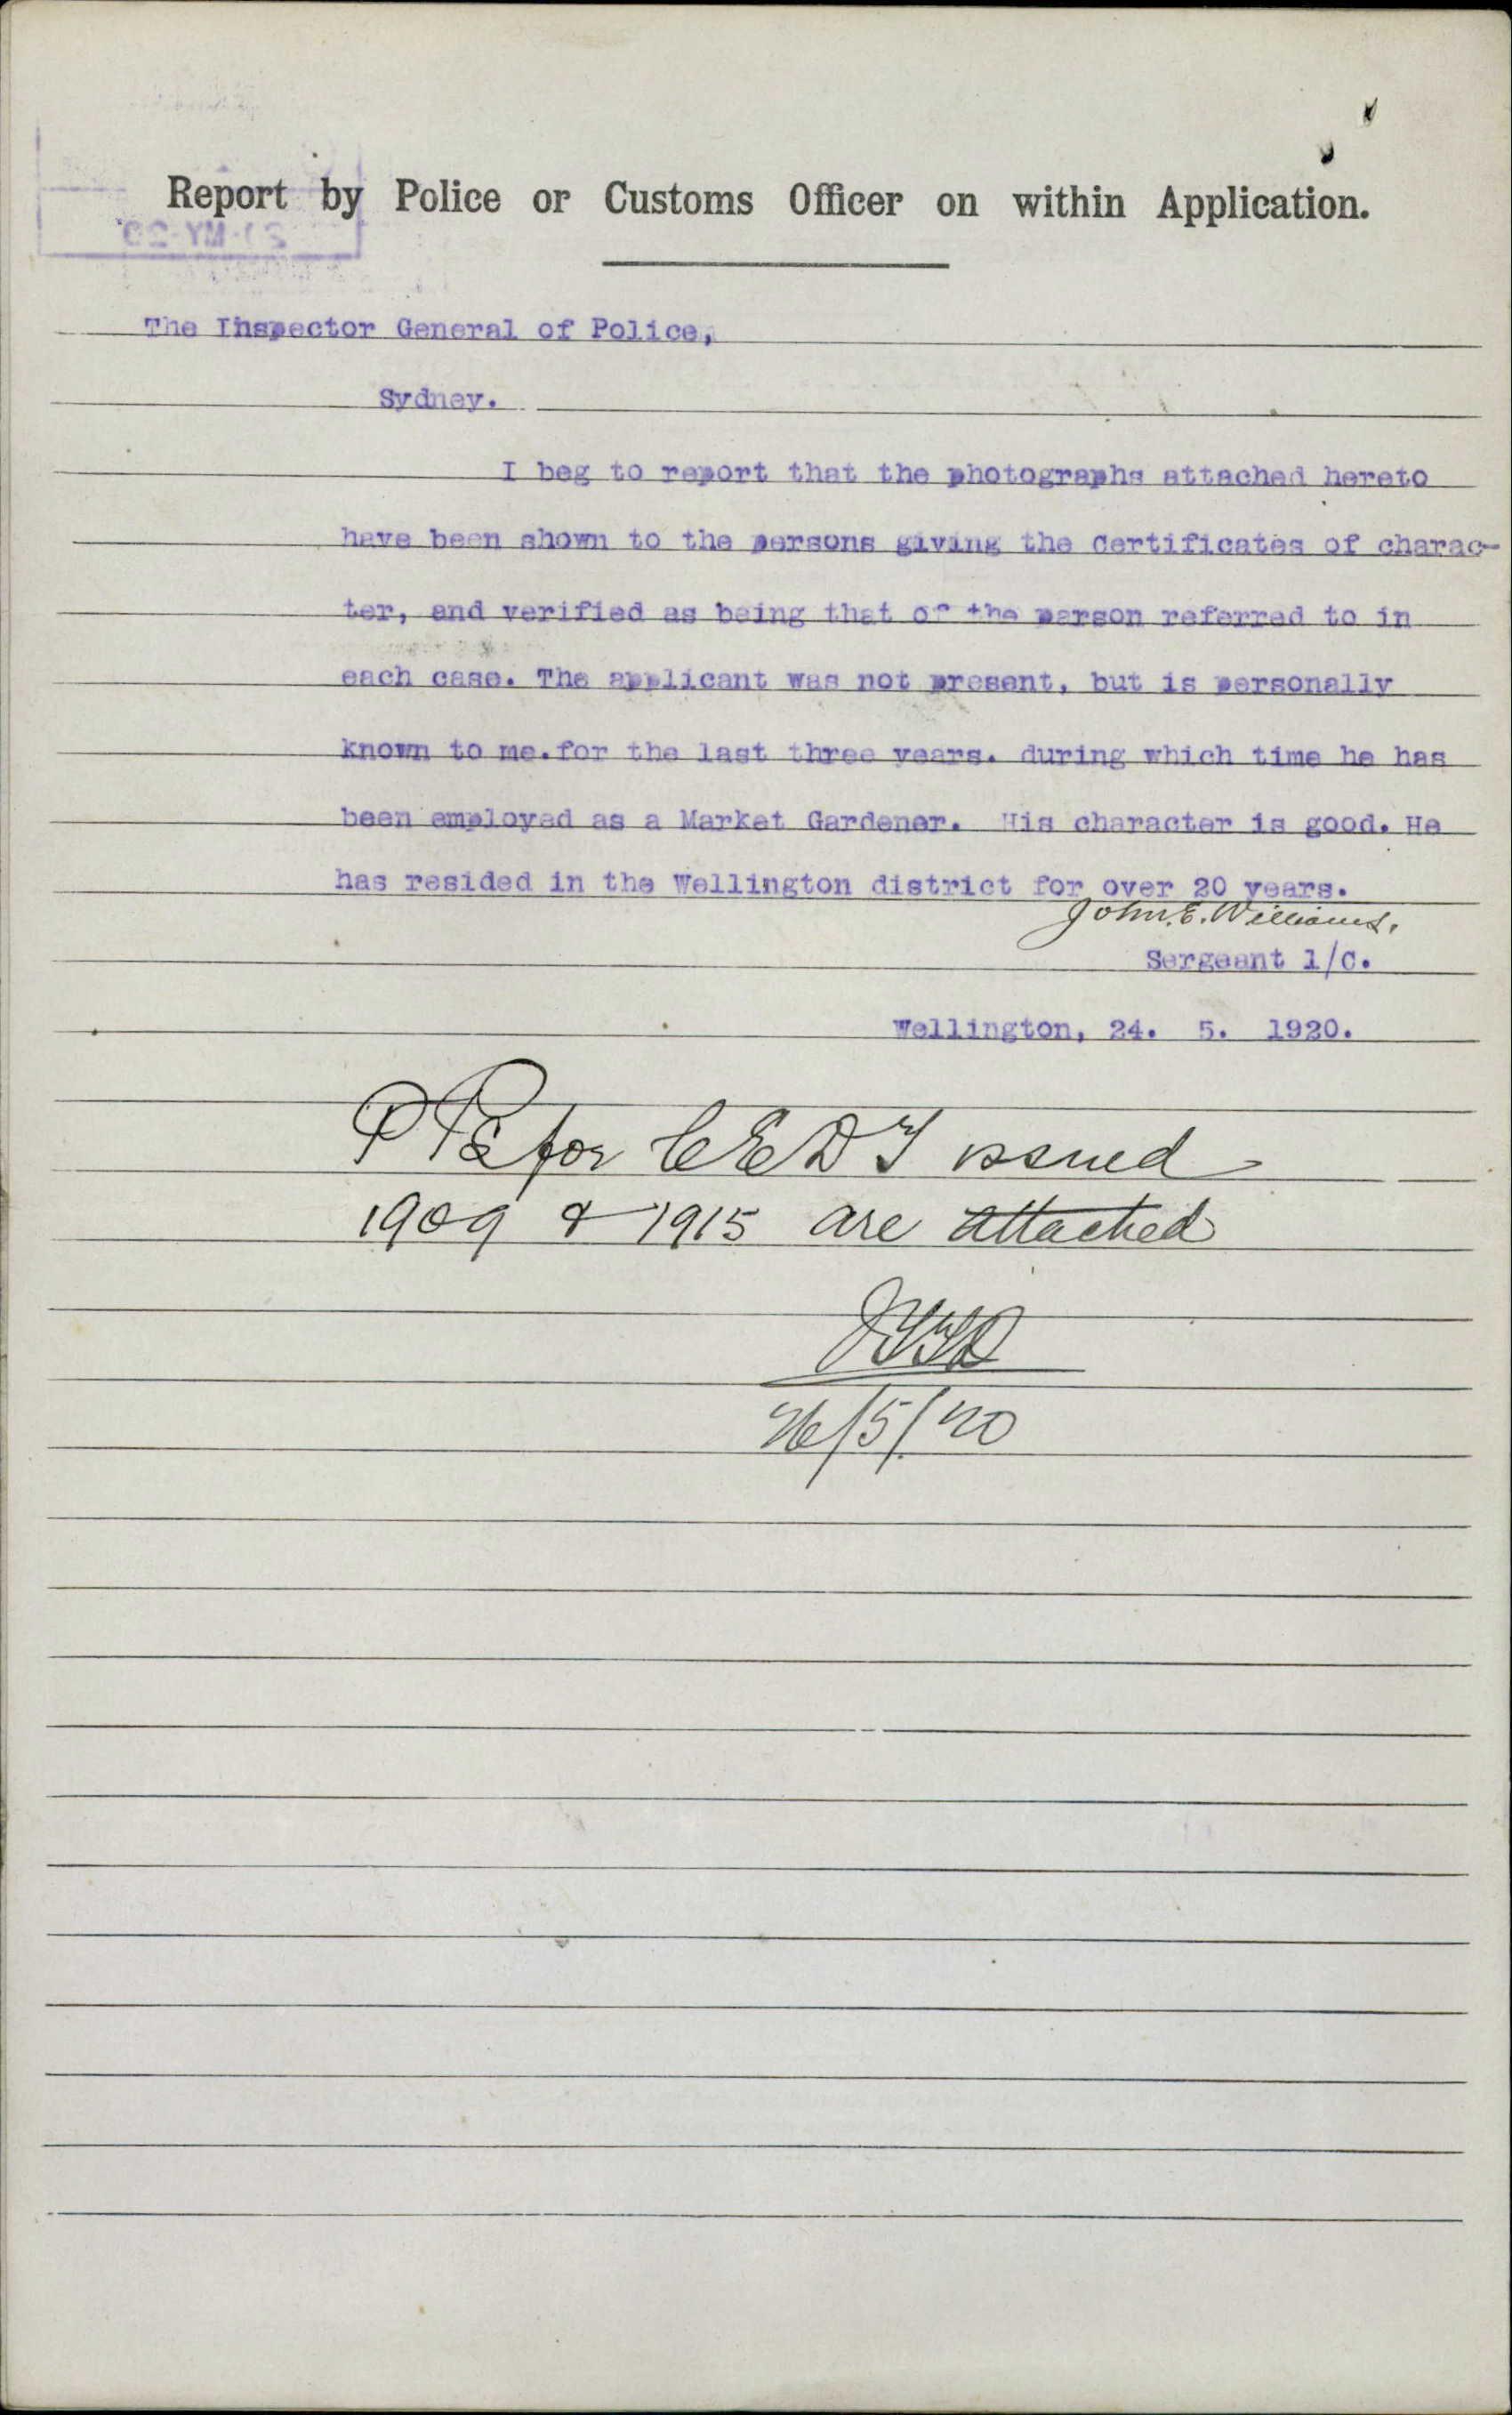 Report by Police or Customs Officer on within Application.
The Inspector General of Police,
Sydney.
I beg to report that the photographs attached hereto
have been shown to the persons giving the Certificates of charac-
ter, and verified as being that of the person referred to in
each case. The applicant was not present, but is personally
known to me.for the last three years. during which time he has
been employed as a Market Gardener. His character is good. He
has resided in the Wellington district for over 20 years.
John.E.Williams.
Sergeant 1/C.
Wellington, 24. 5. 1920.
for CEDT issued
1909 & 1915 are attached
26/5/20